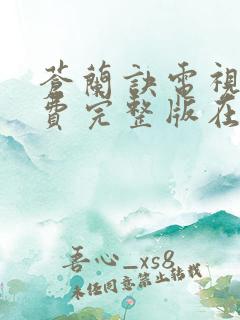 苍蘭訣電視
費完整版在
吾心_xs8
未經同意禁止轉載